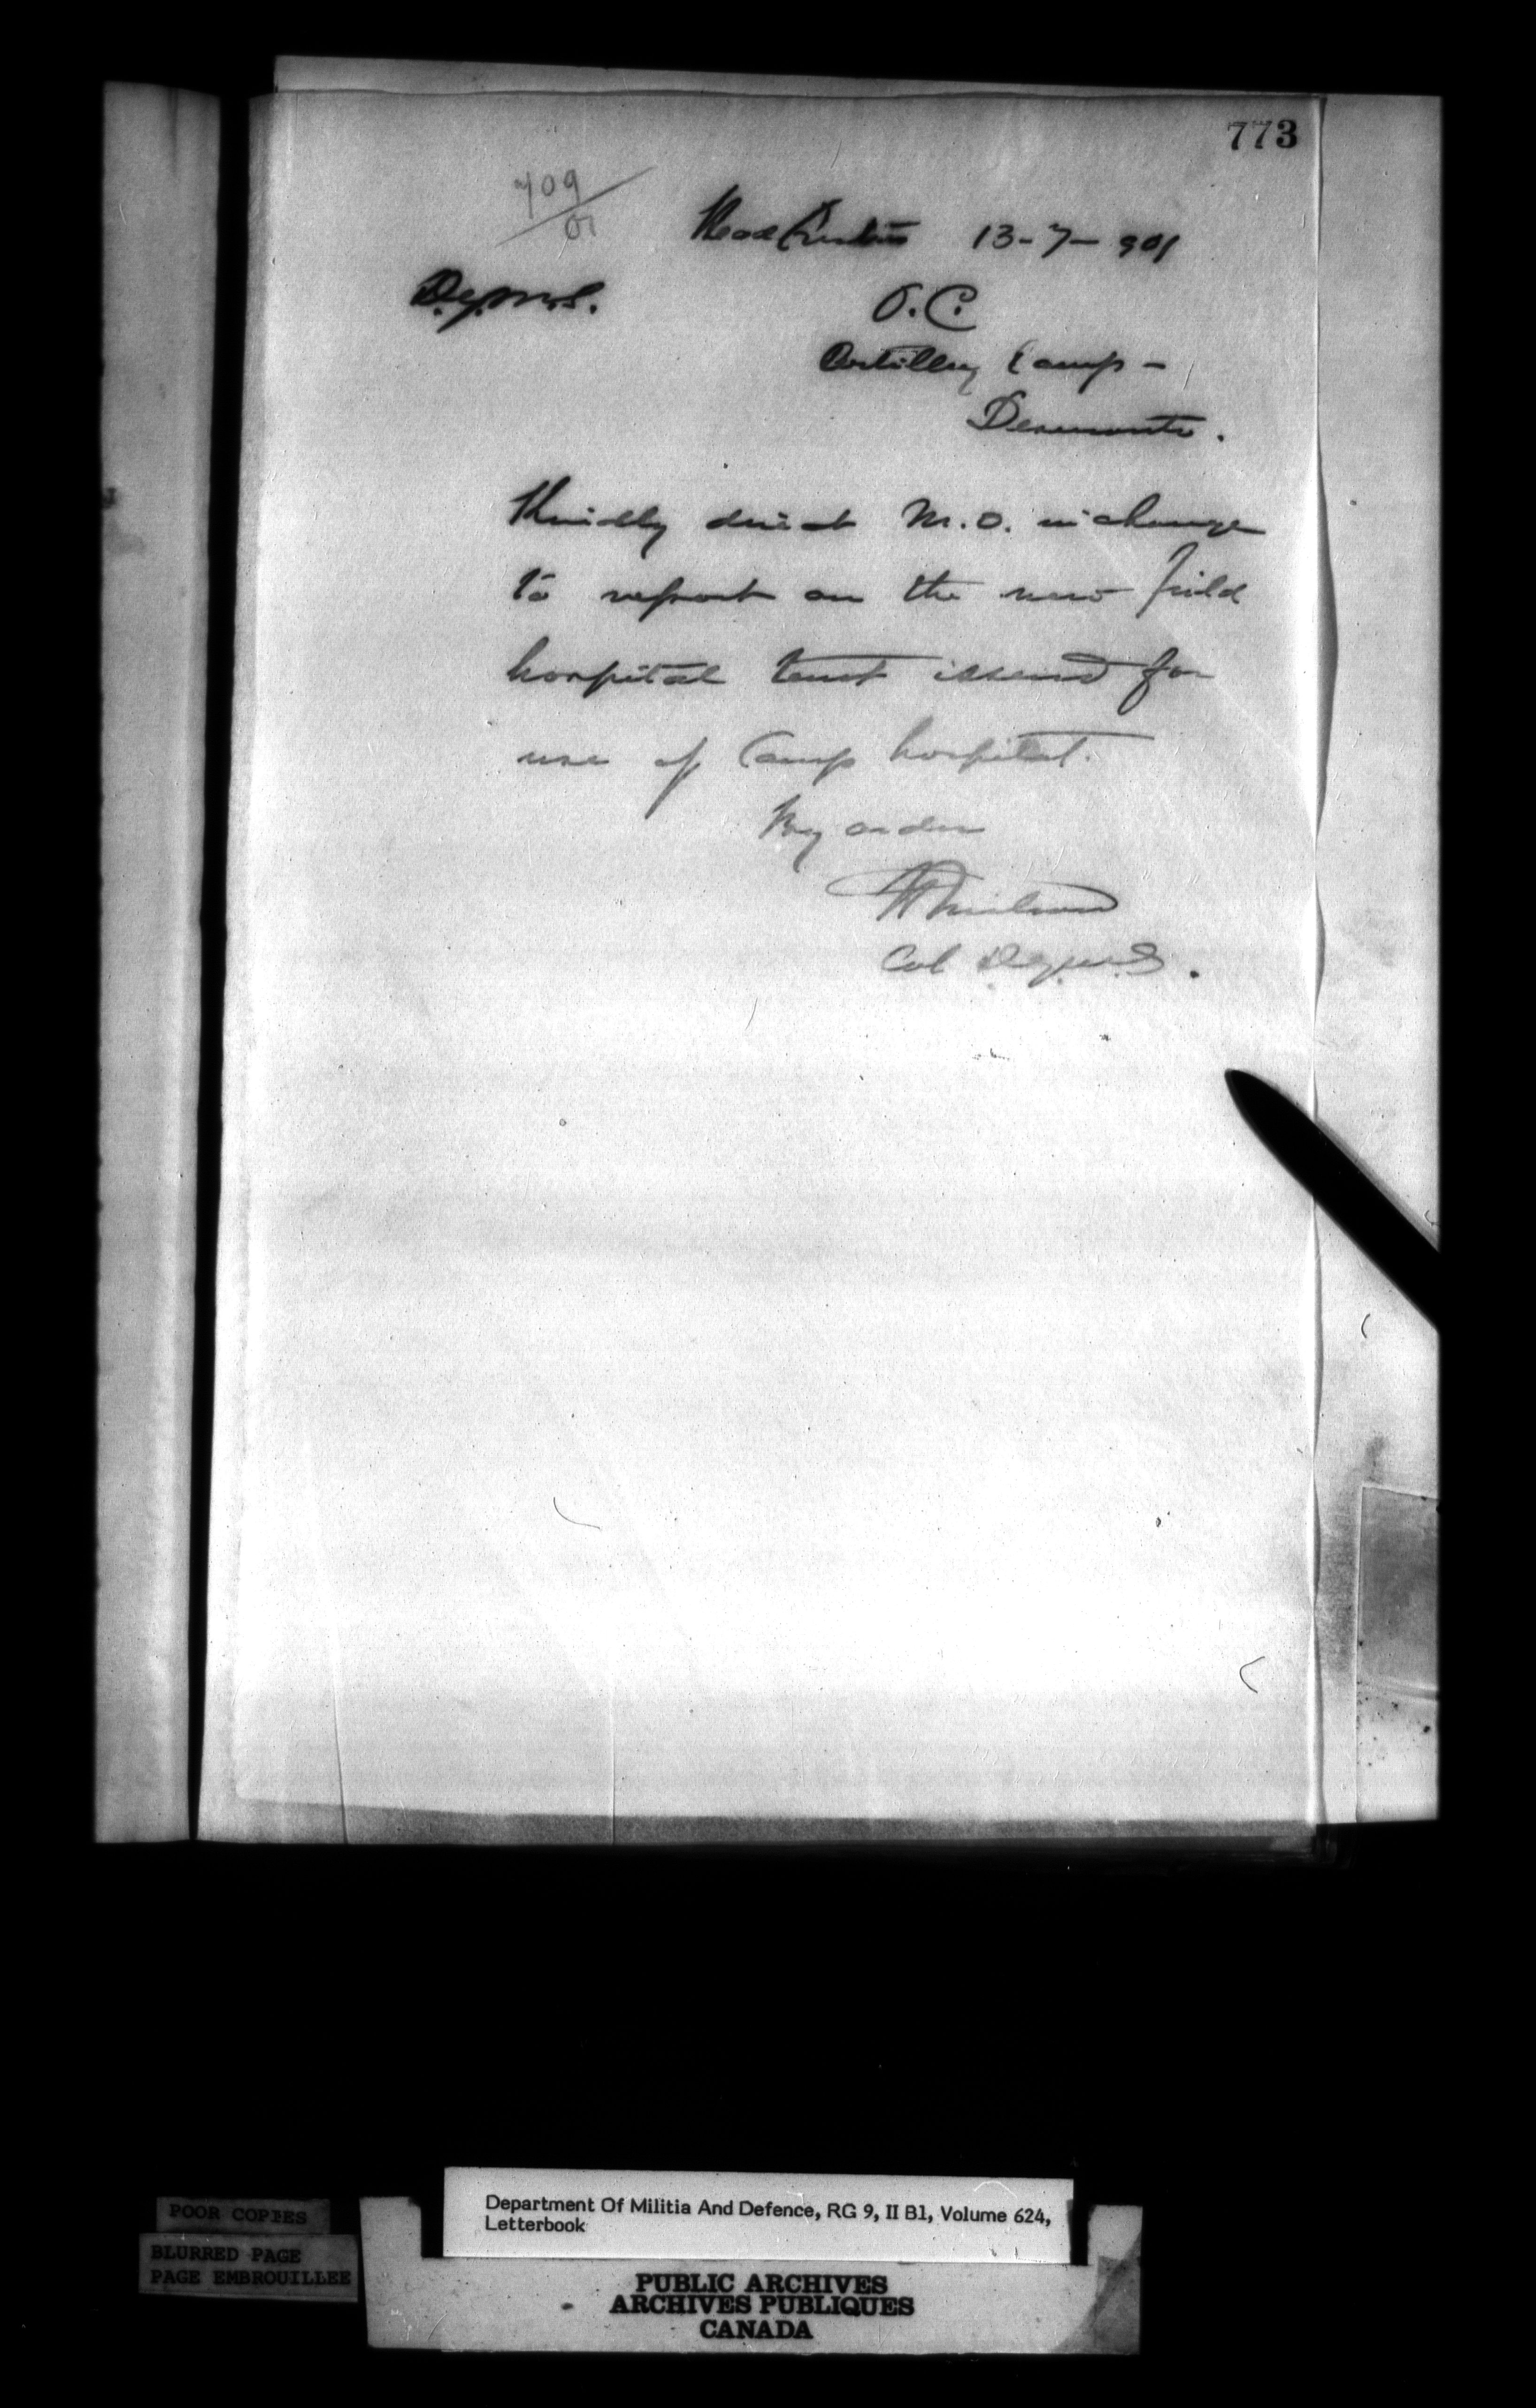 773
709/01
Head Quarters 13-7-901
D.G.M.S.
O.C.
Artillery Camp -
Deseronto.
Kindly direct M.O. in charge
to report on the new field
hospital tent issued for
use of Camp hospital.
By order
Neilson
Col D.G.M.S.
Department Of Militia And Defence, RG 9, II B1, Volume 624,
Letterbook
POOR COPIES
BLURRED PAGE
PAGE EMBROUILLEE
PUBLIC ARCHIVES
ARCHIVES PUBLIQUES
CANADA